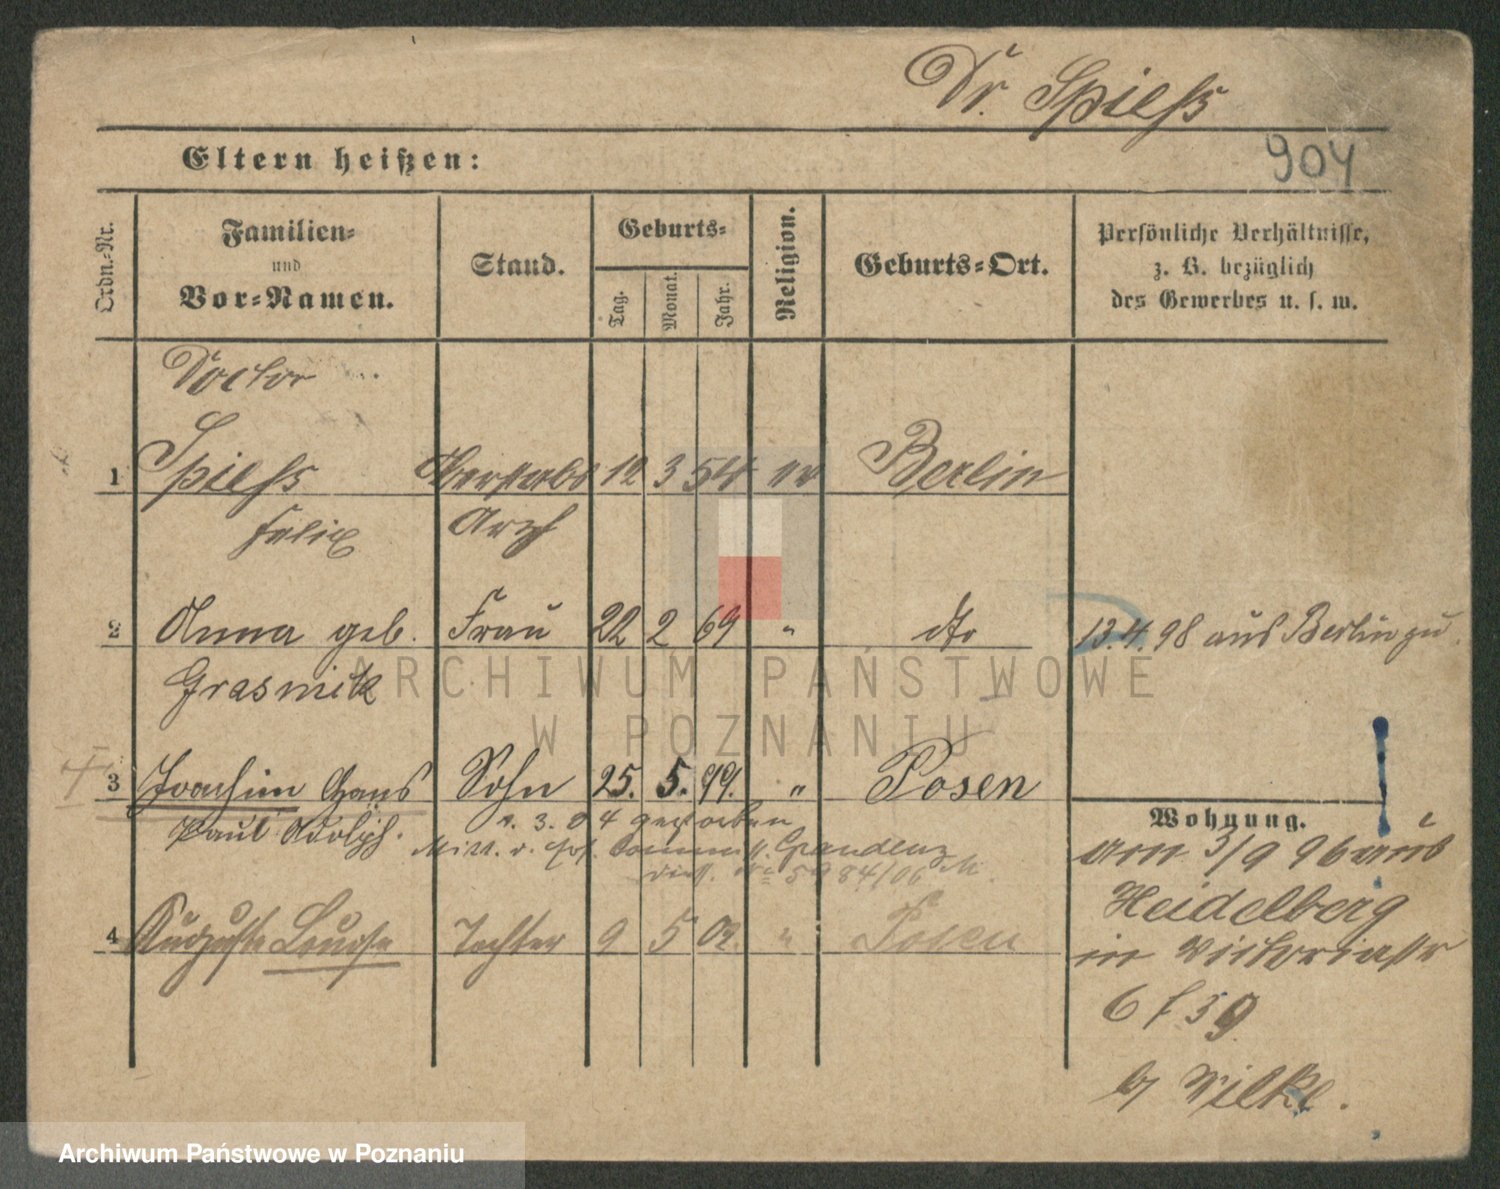 Dr. Spieß
Eltern heißen:
904
Ordn.-Nr.
Familien-
und
Vor-Namen.
Stand.
Geburts-
Tag.
Monat.
Jahr.
Religion.
Geburts-Ort.
Persönliche Verhältnisse,
z. B. bezüglich
des Gewerbes u. s. w.
Doctor
1 Spieß Oberstabs 12 3 54 ev Berlin
Felix Arzt
2 Anna geb. Frau 22 2 69 " dto 13.4.98 aus Berlin zu
Grasnick
3 Joachim Hans Sohn 25. 5. 99. " Posen
Paul Adolph. 3. 04 gestorben
Mitt. d. Graudenz
5984/06
4 Auguste Louise Tochter 9 5 02. " Posen
Wohnung.
am 3/9 96 aus
Heidelberg
in Victoriastr
6 f 39
b/ Wilke.
ARCHIWUM PAŃSTWOWE
W POZNANIU
Archiwum Państwowe w Poznaniu